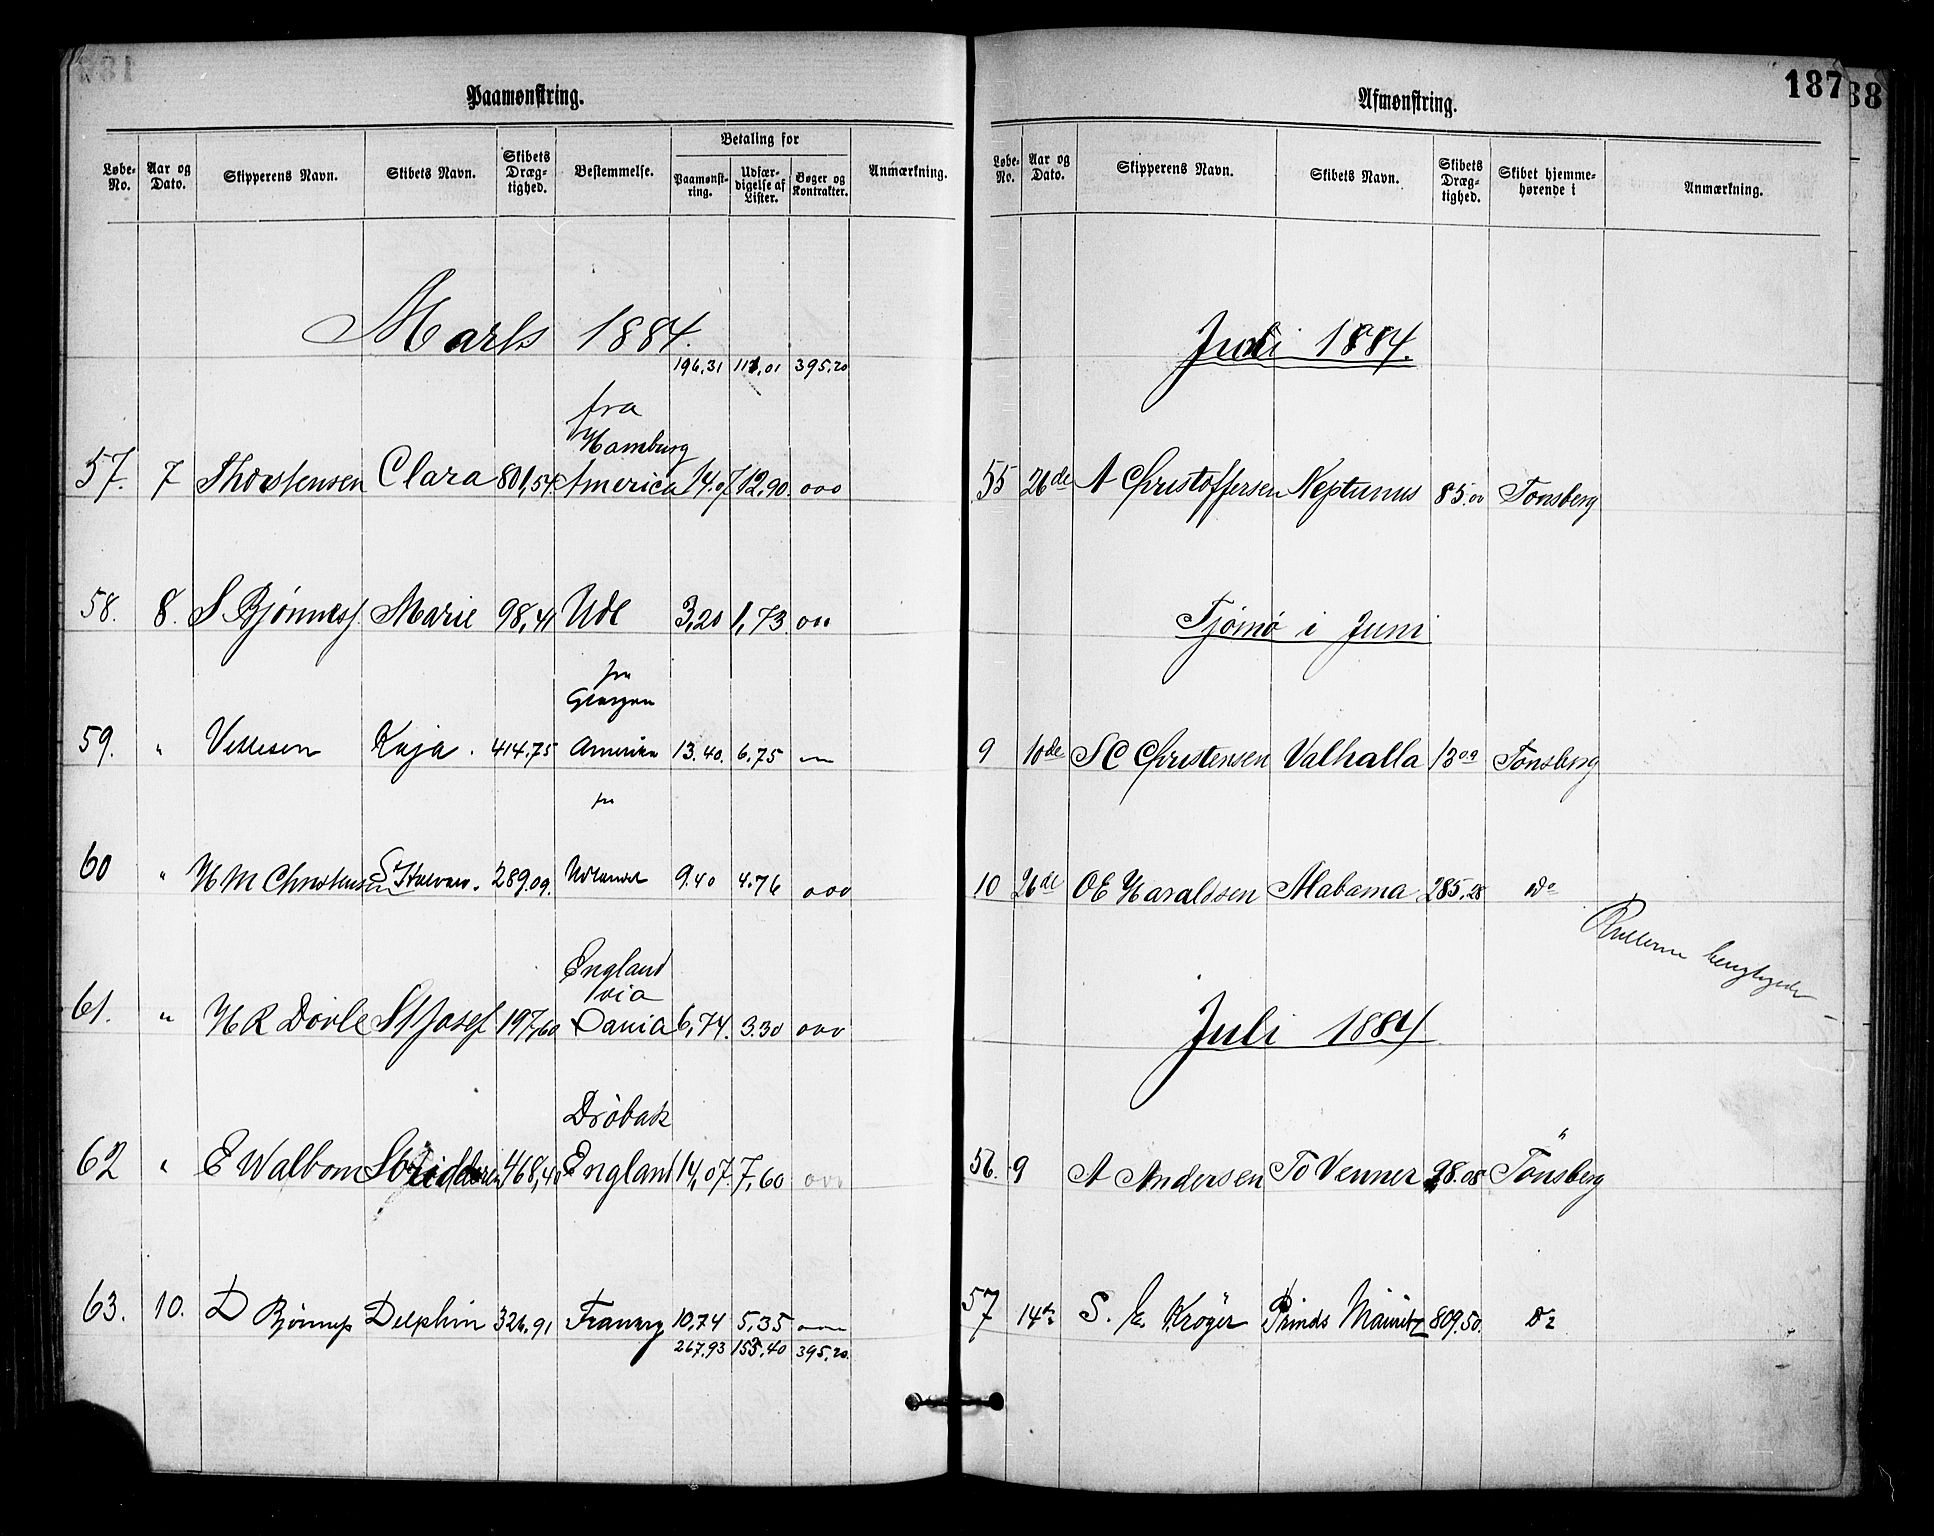 Paamønstring.
Løbe-No. Aar og Dato. Skipperens Navn. Skibets Navn. Skibets Dræg-tighed. Bestemmelse. Betaling for Paamønst-ring. Udfær-digelse af Lister. Bøger og Kontrakter. Anmærkning.
Marts 1884.
196.31 111,01 395,20
fra
Hamburg
57. 7 Thorstensen Clara 801,54 America 14.07 12,90. ooo
58. 8. S Bjønness Marie 98,41 Udl 3,20 1,73.
fra
Glasgow
59. " Vettesen Kaja. 414,75 Amerika 13.40. 6,75
fra
60 " H M Christensen St Halvard. 289.09. Udlandet 9.40 4.76 ooo
England
via
61. " H R Dovle St Josef 197,60 Dania 6,74. 3.30 ooo
Drøbak
62 " E Walbom 468,40 England 14,07. 7,60 ooo
63. 10. D Bjønness Delphin 326,91 10,74 5,35
267,93 155,40 395,20.
187
88
Afmønstring.
Løbe-No. Aar og Dato. Skipperens Navn. Skibets Navn. Skibets Dræg-tighed. Skibet hjemme-hørende i Anmærkning.
Juli 1884.
55 26de A Christoffersen Neptunus 85.00 Tonsberg
Tjømø i Juni
9 10de S C Christensen Valhalla Tonsberg
10 26de O E Haraldsen Alabama 285,28 Do
Rullerne
Juli 1884
56. 9 A Andersen To Venner 98.08 Tönsberg
57 14de S. E. Kröger Prinds Mauritz 809.50. Do